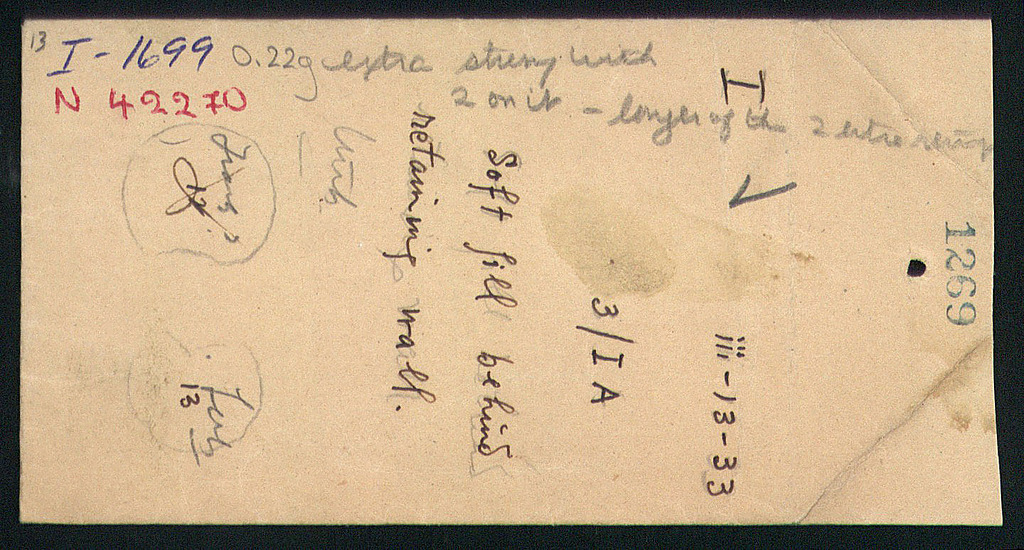 13
I-1699 0.22g extra string with
2 on it - longer of the 2 extra
N 42270
I
iii-13-33
3/IA
Soft fill behind
retaining wall.
13
1269